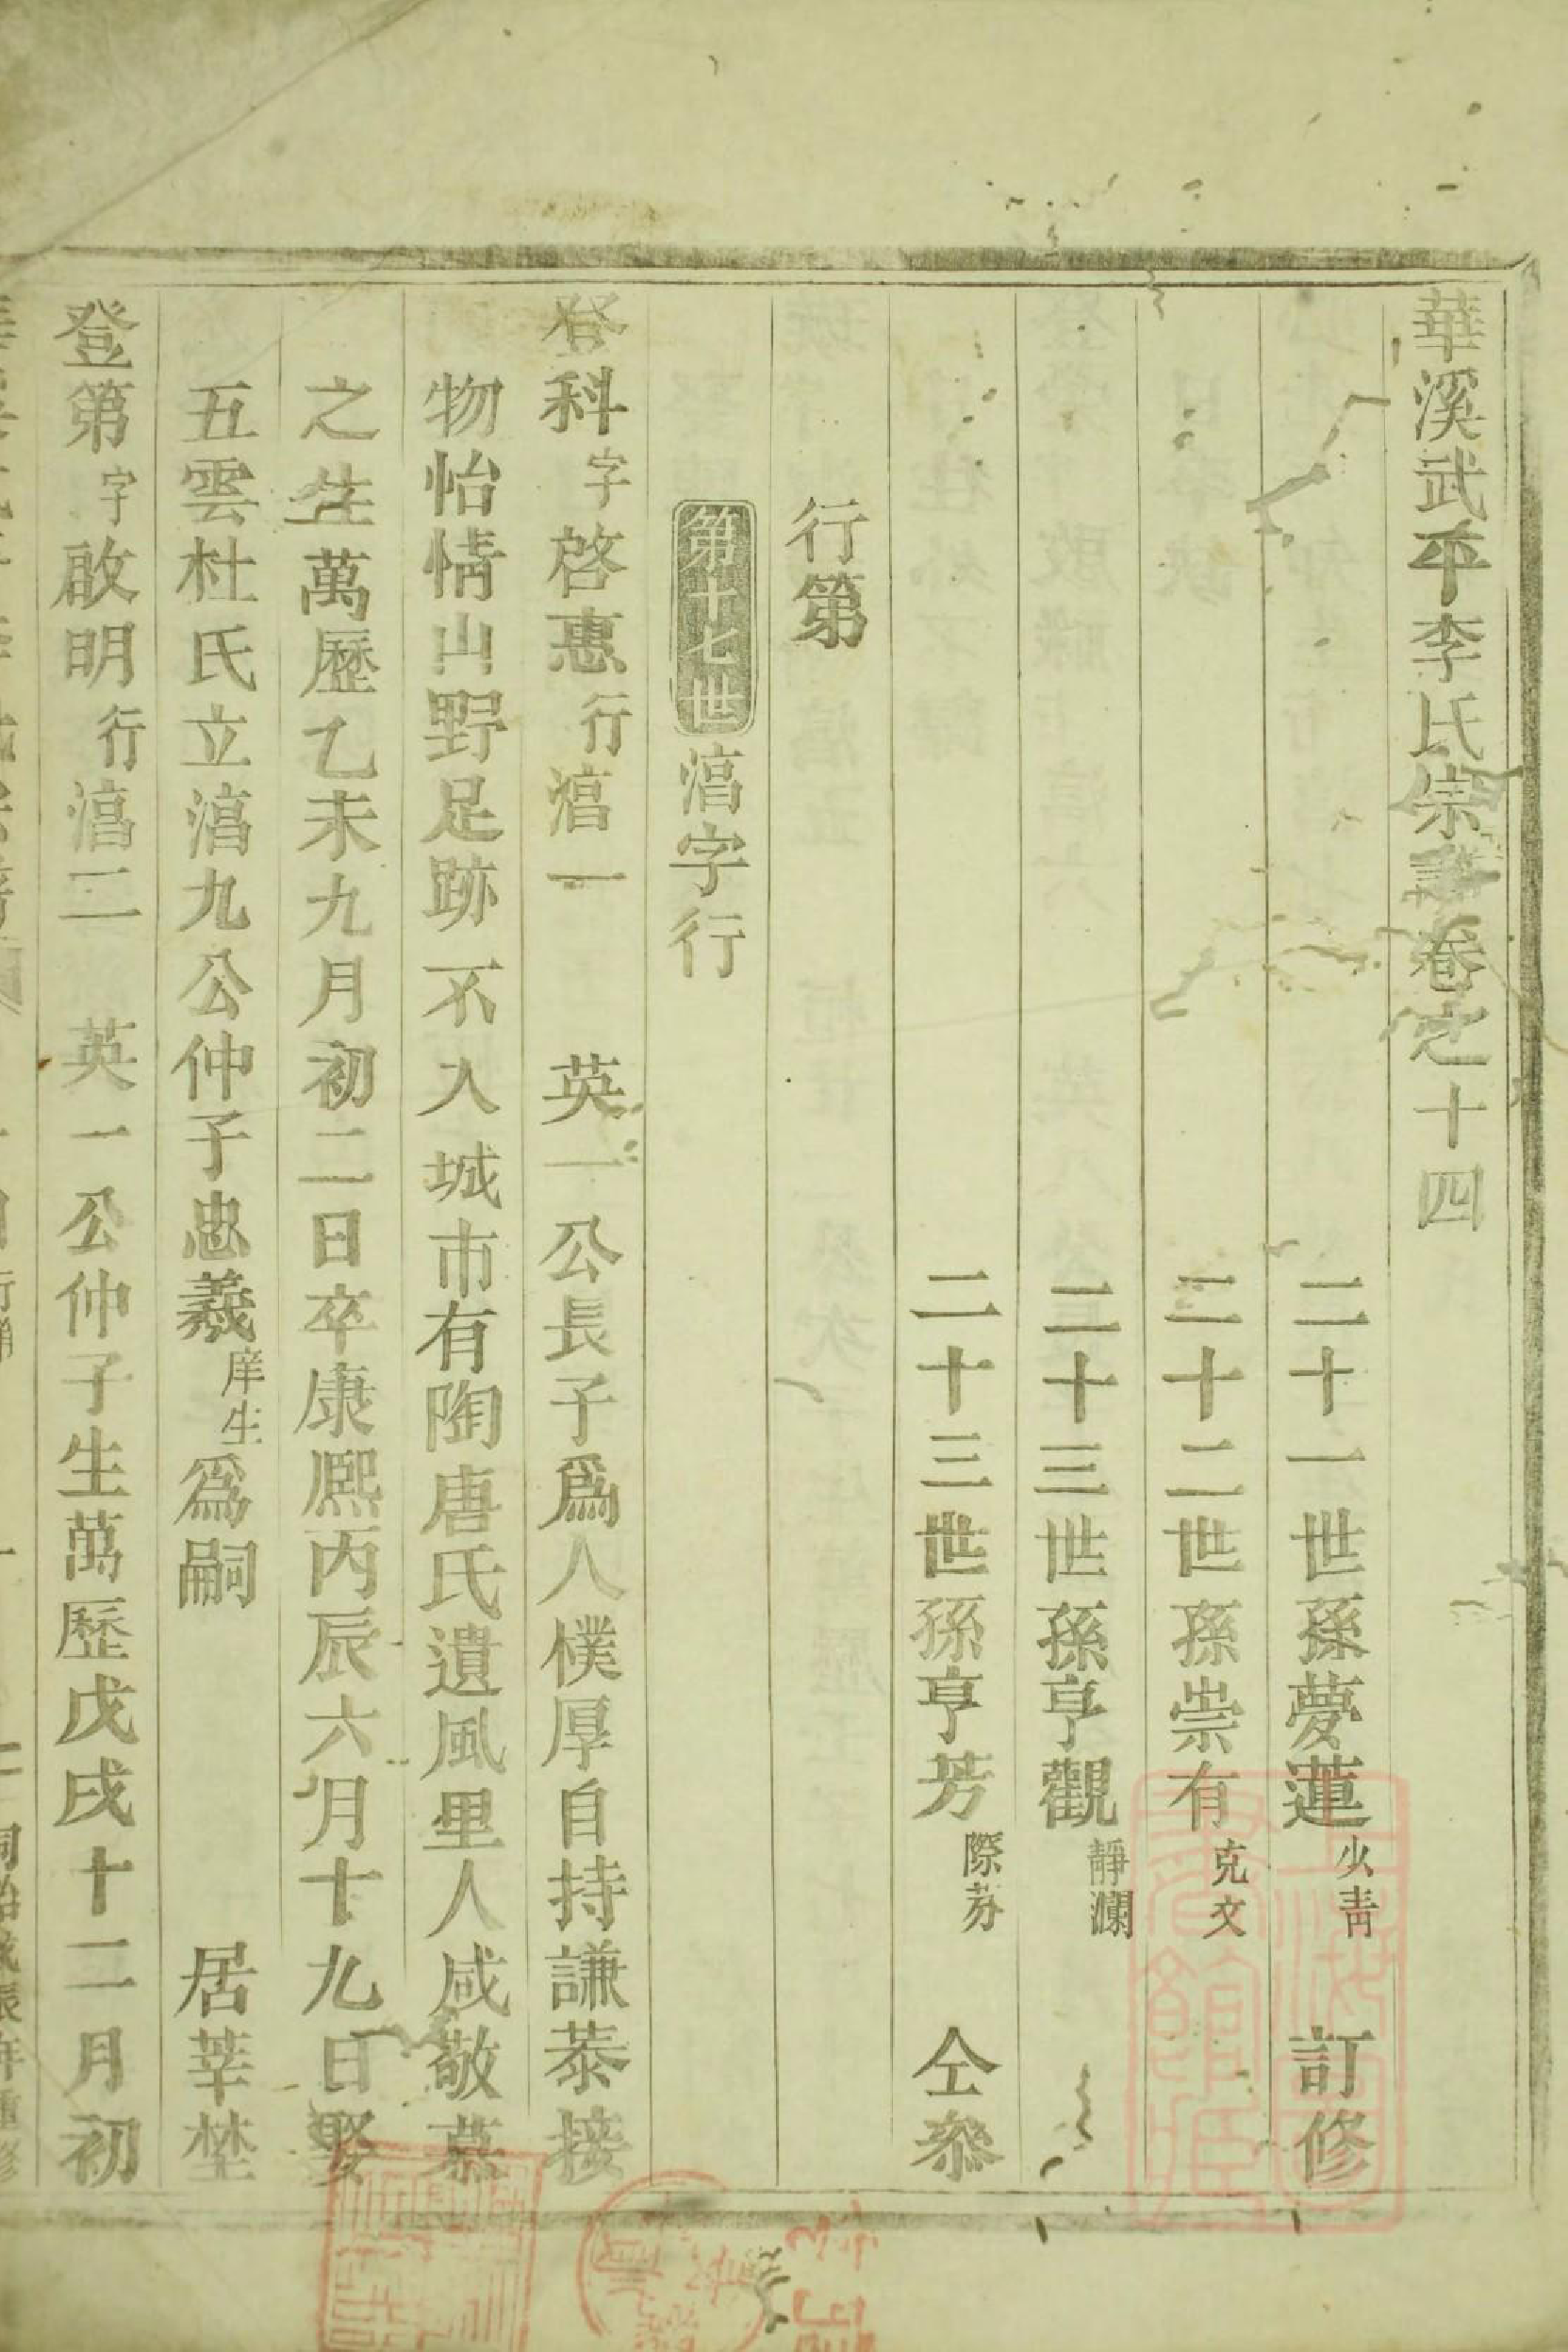 華溪武平李氏宗譜卷之十四
二十一世孫夢蓮火青 訂修
二十二世孫崇有克文
二十三世孫亨觀靜瀾
二十三世孫亨芳際芬 仝叅
行第
第十七世 湻字行
登科字啓惠行湻一 英一公長子爲人樸厚自持謙恭接
物怡情山野足跡不入城市有陶唐氏遺風里人咸敬慕
之生萬歷乙未九月初二日卒康熙丙辰六月十九日娶
五雲杜氏立湻九公仲子忠義庠生爲嗣 居莘埜
登第字啟明行湻二 英一公仲子生萬歷戊戌十二月初